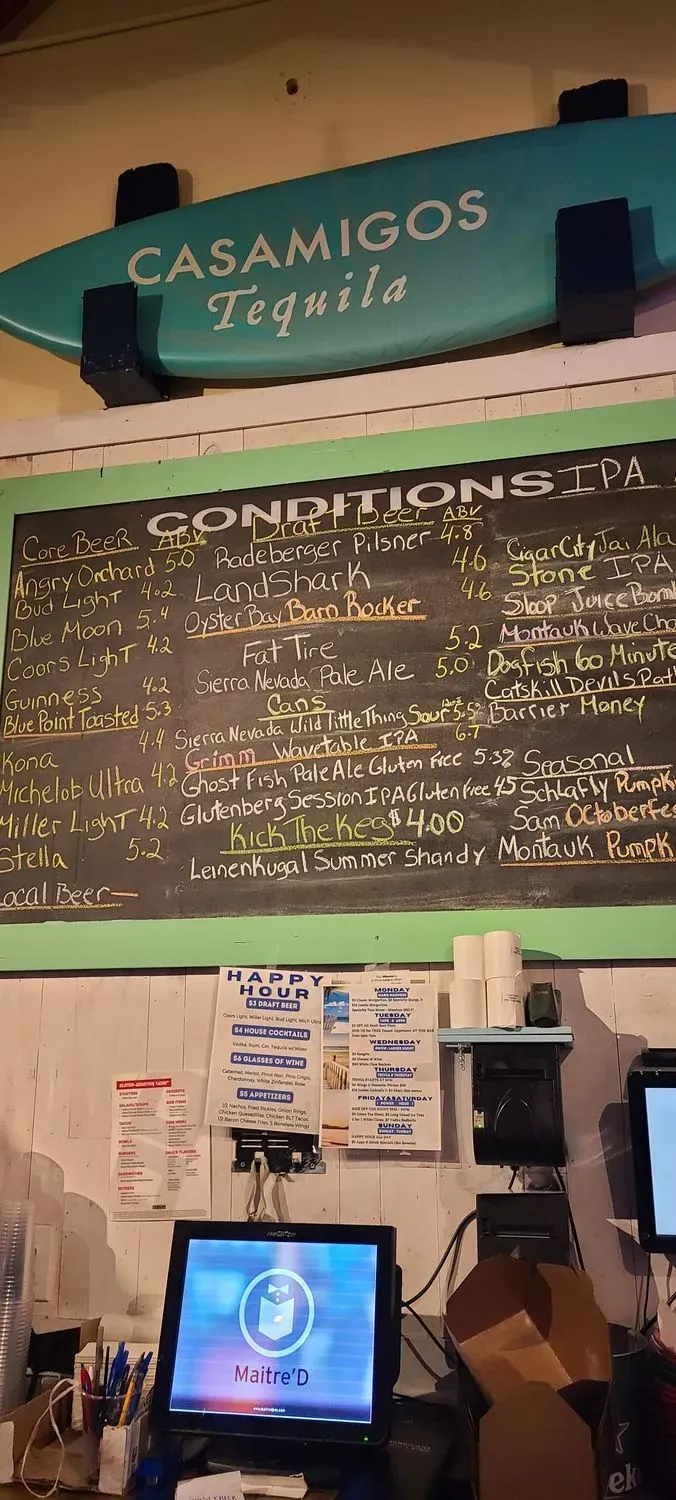 CASAMIGOS
Tequila
CONDITIONS
Core Beer ABV
Angry Orchard 5.0
Bud Light 4.2
Blue Moon 5.4
Coors Light 4.2
Guinness 4.2
Blue Point Toasted 5.3
Kona 4.4
Michelob Ultra 4.2
Miller Light 4.2
Stella 5.2
Local Beer
Draft Beer ABV
Radeberger Pilsner 4.8
LandShark 4.6
Oyster Bay Barn Rocker 4.6
Fat Tire 5.2
Sierra Nevada Pale Ale 5.0
Cans
Sierra Nevada Wild Little Thing Sour 5.5
Grimm Wavetable IPA 6.7
Ghost Fish Pale Ale Gluten Free 5.3%
Glutenberg Session IPA Gluten Free 4.5
Kick The Keg $4.00
Leinenkugal Summer Shandy
IPA
Cigar City Jai Ala
Stone IPA
Sloop Juice Bom
Montauk Wave Cha
Dogfish 60 Minute
Catskill Devils Pat
Barrier Money
Seasonal
Schlafly Pumpk
Sam Octoberfes
Montauk Pumpk
HAPPY
HOUR
$3 DRAFT BEER
Coors Light, Miller Light, Bud Light, Mich Ultra
$4 HOUSE COCKTAILS
Vodka, Rum, Gin, Tequila w/ Mixer
$6 GLASSES OF WINE
Cabernet, Merlot, Pinot Noir, Pino Grigio,
Chardonnay, White Zinfandel, Rose
$5 APPETIZERS
1/2 Nachos, Fried Pickles, Onion Rings,
Chicken Quesadillas, Chicken BLT Tacos
1/2 Bacon Cheese Fries, 5 Boneless Wings
MONDAY
TUESDAY
WEDNESDAY
THURSDAY
FRIDAY&SATURDAY
SUNDAY
STARTERS
TACOS
BOWLS
BURGERS
SANDWICHES
ENTREES
DESSERTS
SIDE ITEMS
KIDS MENU
SAUCE FLAVORS
Maitre'D